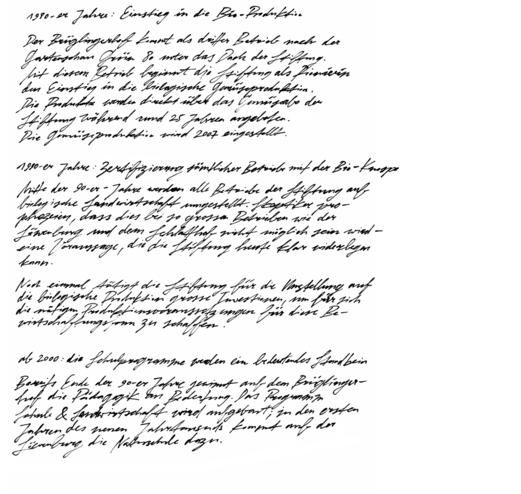 1980-er Jahre: Einstieg in die Bio-Produktion
Der Brüglingerhof kommt als dritter Betrieb nach der
Gartenschau Grün 80 unter das Dach der Stiftung.
Mit diesem Betrieb beginnt die Stiftung als Pionierin
den Einstieg in die biologische Gemüseproduktion.
Die Produkte werden direkt über das Gemüseabo der
Stiftung während rund 25 Jahren angeboten.
Die Gemüseproduktion wird 2007 eingestellt.
1990-er Jahre: Zertifizierung sämtlicher Betriebe mit der Bio-Knospe
Mitte der 90-er-Jahre werden alle Betriebe der Stiftung auf
biologische Landwirtschaft umgestellt. Skeptiker pro-
phezeien, dass dies bei so grossen Betrieben wie der
Löwenburg und dem Schlatthof nicht möglich sein wird –
eine Voraussage, die die Stiftung heute klar widerlegen
kann.
Noch einmal tätigt die Stiftung für die Umstellung auf
die biologische Produktion grosse Investitionen, um für sich
die nötigen Produktionsvoraussetzungen für diese Be-
wirtschaftungsform zu schaffen.
ab 2000: die Schulprogramme werden ein bedeutendes Standbein
Bereits Ende der 90-er Jahre gewinnt auf dem Brüglinger-
hof die Pädagogik an Bedeutung. Das Programm
Schule & Landwirtschaft wird aufgebaut; in den ersten
Jahren des neuen Jahrtausends kommt auf der
Löwenburg die Naturschule dazu.